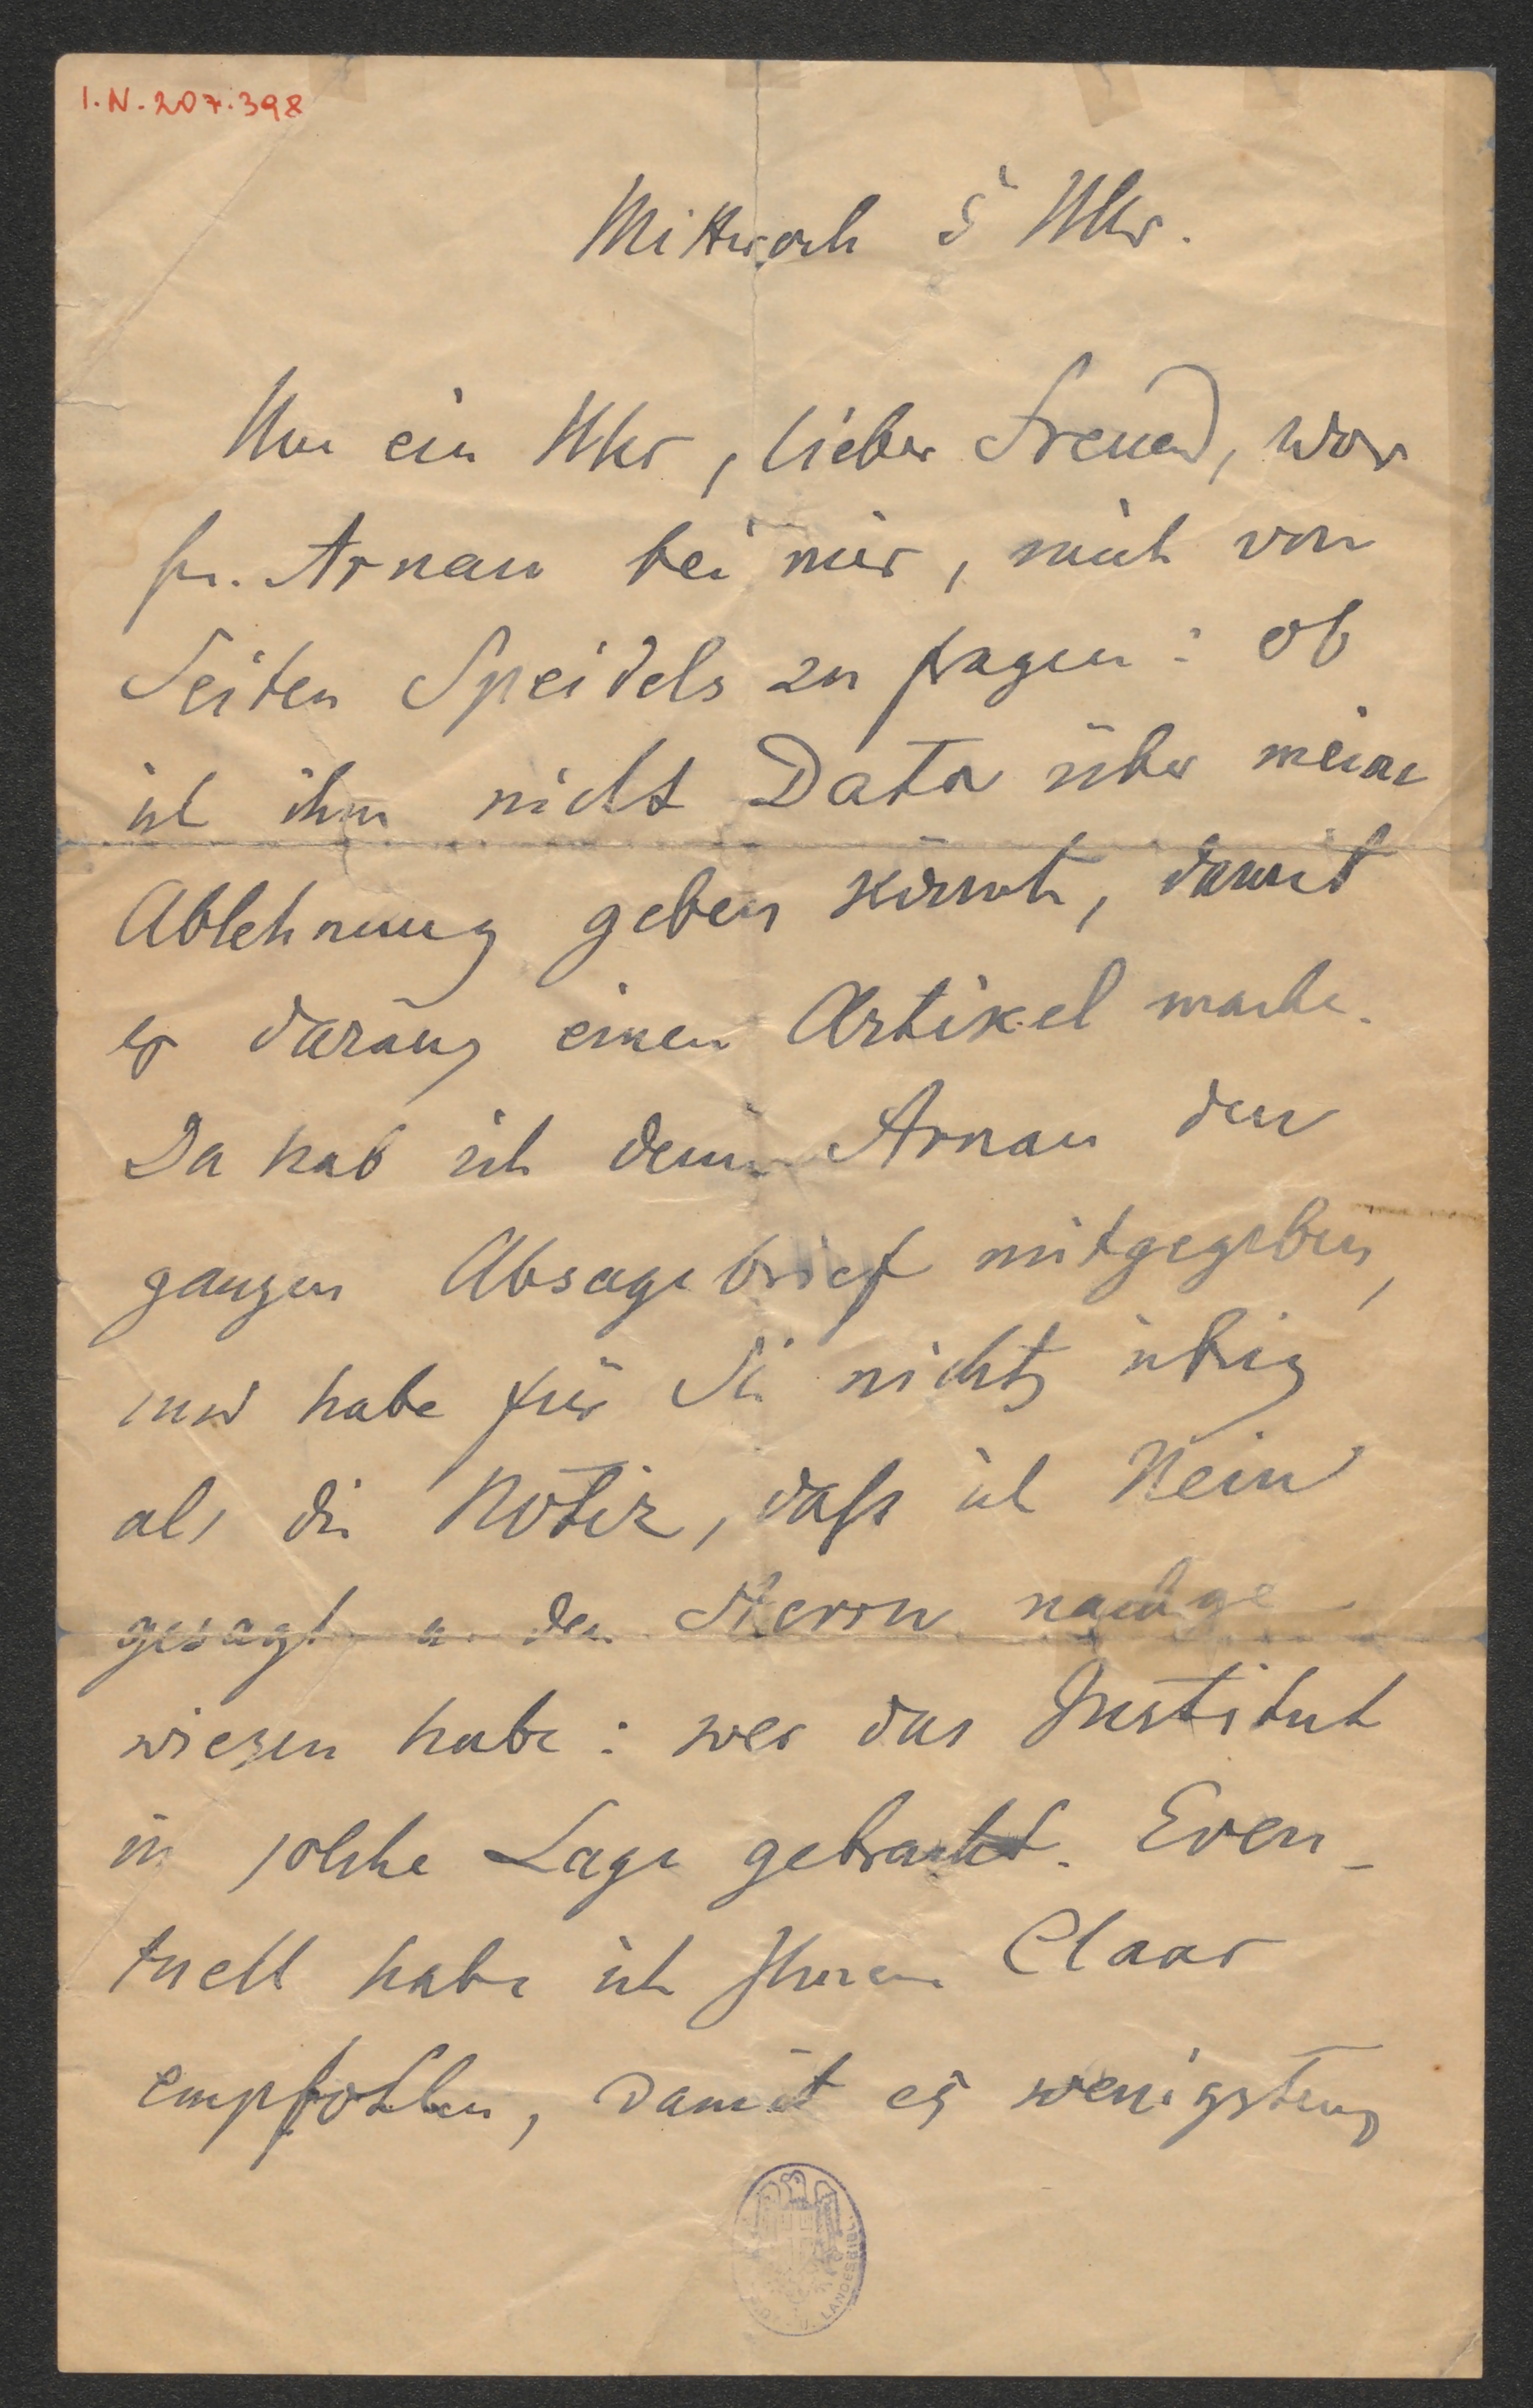 I.N. 207.398
Mittwoch 5 Uhr.
Um ein Uhr, lieber Freund, war
hr. Arnau bei mir, mich von
Seiten Speidels zu fragen: ob
ich ihm nicht Data über meine
Ablehnung geben könnte, damit
er daraus einen Artikel mache.
Da hab ich denn Arnau den
ganzen Absagebrief mitgegeben,
und habe für Sie nichts übrig
als die Notiz, daß ich Nein
gesagt u. den Herrn nachge-
wiesen habe: wer das Institut
in solche Lage gebracht. Even-
tuell habe ich Ihnen Claar
empfohlen, damit es wenigstens
LANDESBIBL